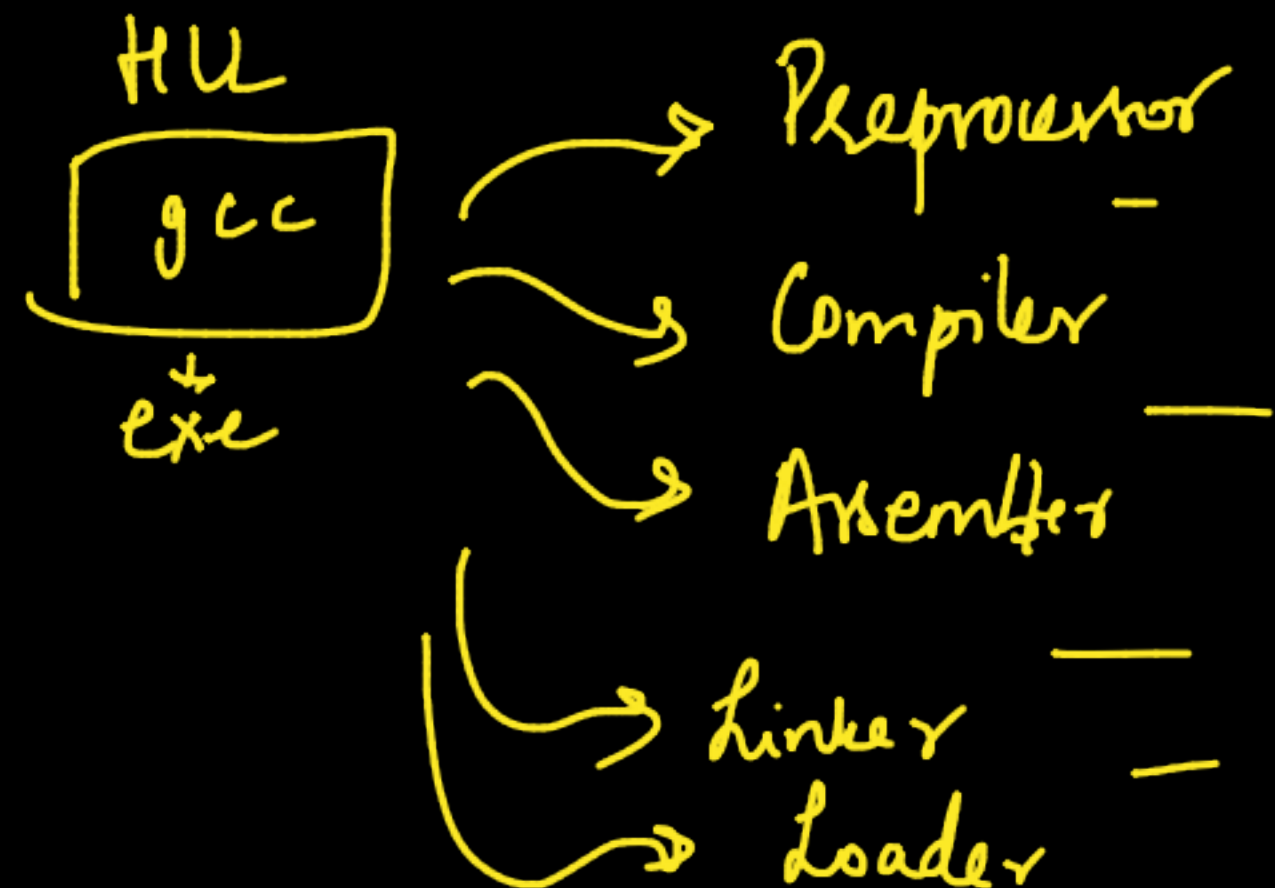 HLL
gcc
exe
Preprocessor
Compiler
Assembler
Linker
Loader